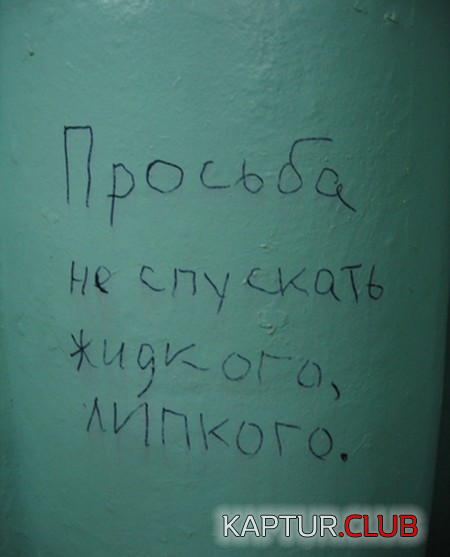 Просьба
не спускать
жидкого,
липкого.
KAPTUR.CLUB